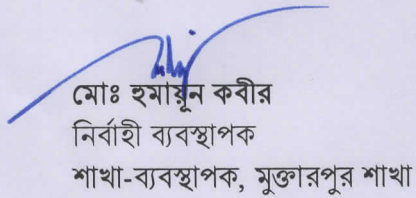 মোঃ হুমায়ূন কবীর
নির্বাহী ব্যবস্থাপক
শাখা-ব্যবস্থাপক, মুক্তারপুর শাখা